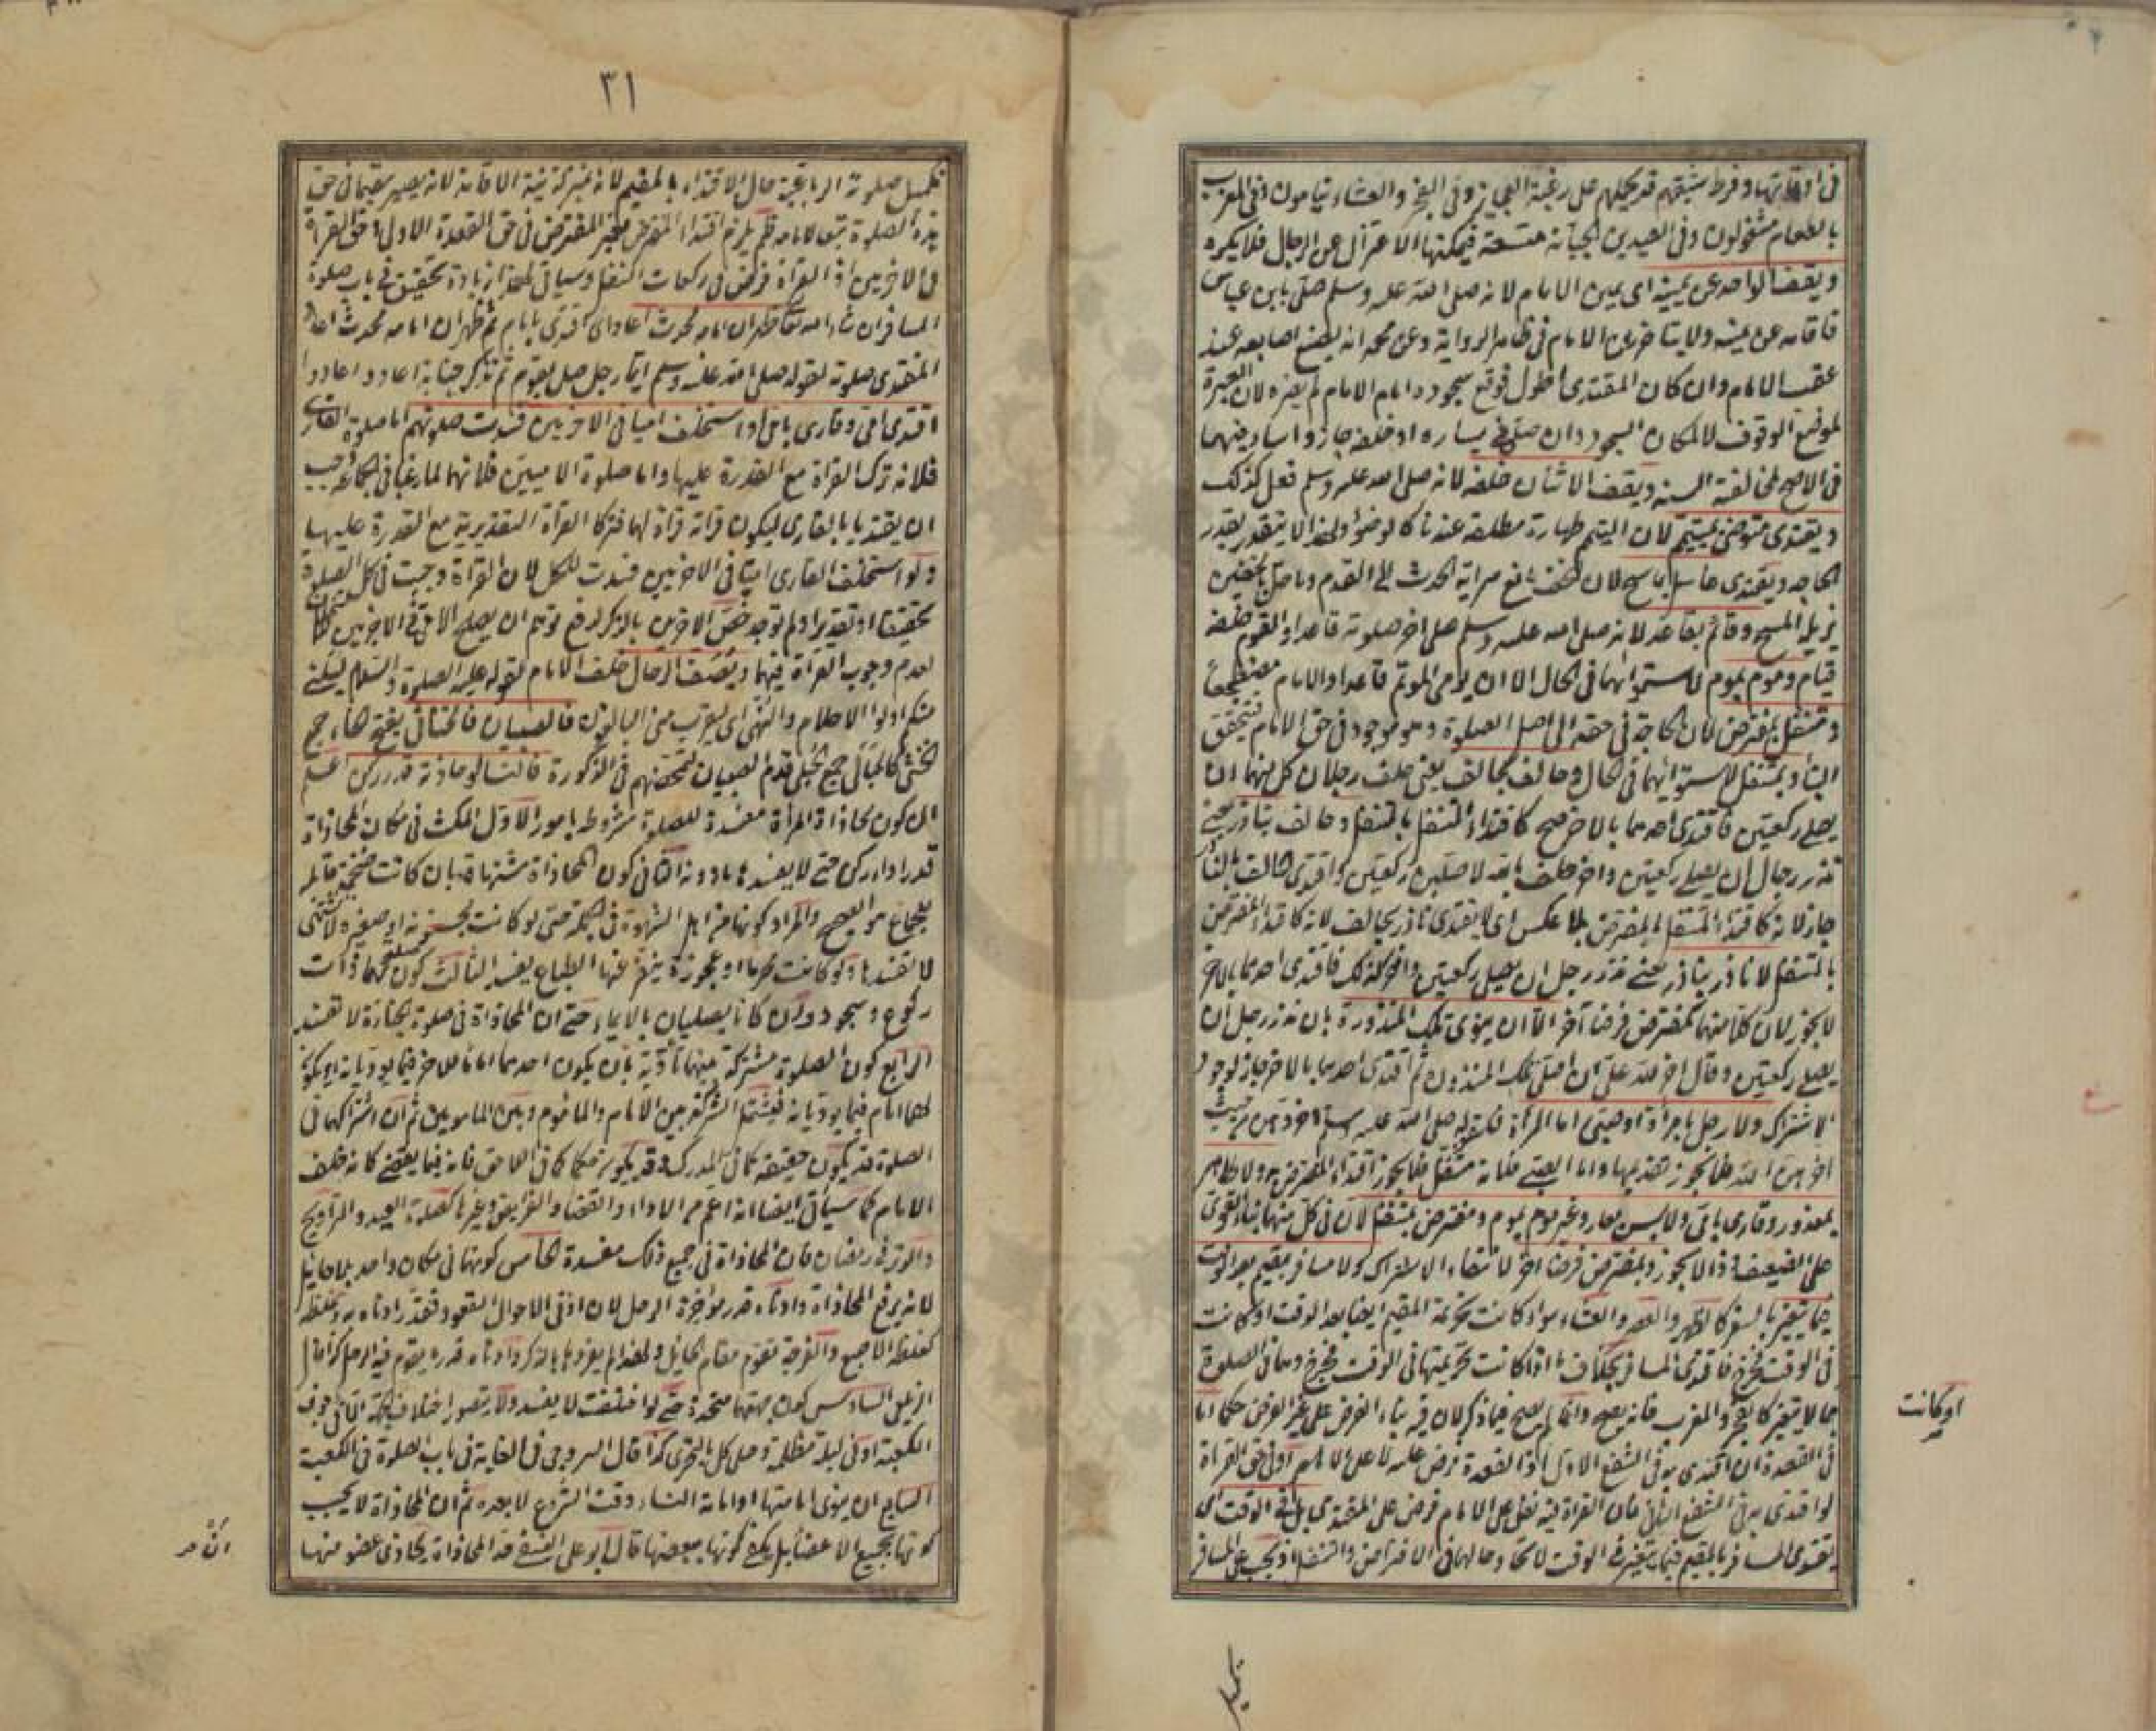 في اوقاتها وفرط شبقهم قد يحملهم على رغبة العجائز وفي الفجر والعشاء نيامون وفي المغرب
بالطعام مشغولون وفي العيدين الجبانة متسعة فيمكنها الاعتزال عن الرجال فلا يكره
ويقف الواحد عن يمينه اى يمين الامام لانه صلى الله عليه وسلم صلى بابن عباس
فاقامه عن يمينه ولا يتاخر عن الامام في ظاهر الرواية وعن محمد انه يضع اصابعه عند
عقب الامام وان كان المقتدى اطول فوقع سجوده امام الامام لم يضره لان العبرة
لموضع الوقوف لا لمكان السجود وان صلى في يساره او خلفه جاز واساء فيهما
في الاصح لمخالفته السنة ويقف الاثنان خلفه لانه صلى الله عليه وسلم فعل كذلك
ويقتدى متوضئ بمتيمم لان التيمم طهارة مطلقة عندنا كالوضوء ولهذا لا يتقدر بقدر
الحاجه ويقتدى غاسل بماسح لان الخف مانع سراية الحدث الى القدم وما حل بالخفين
يزيله المسح وقائم بقاعد لانه صلى الله عليه وسلم صلى اخر صلوته قاعدا والقوم خلفه
قيام وموم بموم لاستوائهما في الحال الا ان يومى الموتم قاعدا والامام مضطجعا
ومتنفل بمفترض لان الحاجة في حقه الى اصل الصلوة وهو موجود في حق الامام فيتحقق
البناء وبمتنفل لاستوائهما في الحال وحالف بحالف يعنى حلف رجلان كل منهما ان
يصلى ركعتين فاقتدى احدهما بالاخر صح كاقتداء المتنفل بالمتنفل وحالف بناذر يعنى
نذر رجل ان يصلى ركعتين واخر حلف بالله لاصلين ركعتين واقتدى الحالف بالناذر
جاز لانه كاقتداء المتنفل بالمفترض بلا عكس اى لا يقتدى ناذر بحالف لانه كاقتداء المفترض
بالمتنفل لا ناذر بناذر يعنى نذر رجل ان يصلى ركعتين واخر كذلك فاقتدى احدهما بالاخر
لا يجوز لان كلا منهما كمفترض فرضا آخر الا ان ينوى تلك المنذورة بان نذر رجل ان
يصلى ركعتين وقال اخر لله على ان اصلى تلك المنذورة ثم اقتدى احدهما بالاخر جاز لوجود
الاشتراك ولا رجل بامرأة او صبى اما المرأة فلقوله صلى الله عليه وسلم اخروهن من حيث
اخرهن الله فلا يجوز تقديمها واما الصبى فلانه متنفل فلا يجوز اقتداء المفترض به ولا طاهر
بمعذور وقارى بامى ولابس بعار وغير موم بموم ومفترض بمتنفل لان في كل منها بناء القوى
على الضعيف وذا لا يجوز وبمفترض فرضا اخر لانتفاء الاشتراك ولا مسافر بمقيم بعد الوقت
فيما يتغير بالسفر كالظهر والعصر والعشاء سواء كانت تحريمة المقيم ايضا بعد الوقت او كانت
في الوقت فخرج فاقتدى المسافر بخلاف ما اذا كانت تحريمتهما في الوقت فخرج وهما في الصلوة
فيما لا يتغير كالفجر والمغرب فانه يصح وانما لم يصح فيما ذكر لان فيه بناء الفرض على غير الفرض حكما اما
في القعدة ان اقتدى به في الشفع الاول اذ القعدة فرض عليه لا على الامام او في حق القراءة
لو اقتدى به في الشفع الثانى فان القراءة فيه نفل على الامام فرض على المقتدى بل في الوقت اى
يقتدى المسافر بالمقيم فيما يتغير في الوقت لاتحاد حالهما في الافتراض والتنفل اذ يجب على المسافر
او كانت
تكميل
٣١
تكميل صلوته الرباعية حال الاقتداء بالمقيم لانه بنيته الاقامة لانه يصير مقيما في حق
هذه الصلوة تبعا لامامه فلم يلزم اقتداء المفترض بغير المفترض في حق القعدة الاولى او حق القراءة
في الاخريين اذ القراءة فرض في ركعات النفل وسياتى لهذا زيادة تحقيق في باب صلوة
المسافر ان شاء الله تعالى ظهر ان امامه محدث اعاد اى اقتدى بامام ثم ظهر ان امامه محدث اعاد
المقتدى صلوته لقوله صلى الله عليه وسلم ايما رجل صلى بقوم ثم تذكر جنابة اعاد واعادوا
اقتدى امى وقارى بامى او استخلف اميا في الاخريين فسدت صلوتهم اما صلوة القارى
فلانه ترك القراءة مع القدرة عليها واما صلوة الاميين فلانهما لما رغبا في الجماعة وجب
ان يقتديا بالقارى ليكون قراته قراءة لهما فتركا القراءة التقديرية مع القدرة عليها
ولو استخلف القارى اميا في الاخريين فسدت للكل لان القراءة وجبت في كل الصلوة
تحقيقا او تقديرا ولم توجد خص الاخريين بالذكر لدفع توهم ان يصلح الامى في الاخريين
لعدم وجوب القراءة فيهما ويصف الرجال خلف الامام لقوله عليه الصلوة والسلام ليلنى
منكم اولوا الاحلام والنهى اى ليقرب منى البالغون فالصبيان فالخناثى بفتح الخاء جمع
الخنثى كالحبالى جمع الحبلى قدم الصبيان لتمحضهم في الذكورة فالنساء لو حاذته قدر ركن اعلم
ان كون محاذاة المرأة مفسدة للصلوة مشروط بامور الاول المكث في مكان المحاذاة
قدر اداء ركن حتى لا يفسد ما دونه الثانى كون المحاذاة مشتهاة بان كانت ضخمة قابلة
للجماع هو الصحيح والمراد كونها من اهل الشهوة في الجملة حتى لو كانت مجنونة او صغيرة لا تشتهى
لا تفسدها ولو كانت محرما او عجوزة ينفر عنها الطباع يفسد الثالث كون صلوتهما ذات
ركوع وسجود وان كانا يصليان بالايماء حتى ان المحاذاة في صلوة الجنازة لا تفسد
الرابع كون الصلوة مشتركة بينهما تأدية بان يكون احدهما اماما للاخر فيما يوديانه او يكون
لهما امام فيما يوديانه فيشمل الشركة بين الامام والماموم وبين المامومين ثم ان اشتراكهما في
الصلوة قد يكون حقيقة كما في المدرك وقد يكون حكما كما في اللاحق فانه فيما يقضى كانه خلف
الامام كما سيأتى ايضا انه اعم من الاداء والقضاء والفرائض وغيرها كصلوة العيد والتراويح
والوتر في رمضان فان المحاذاة في جميع ذلك مفسدة الخامس كونهما في مكان واحد بلا حائل
لانه يرفع المحاذاة وادناه قدر مؤخرة الرحل لان ادنى الاحوال القعود فقدر ادناه به وغلظه
كغلظ الاصبع والفرجة تقوم مقام الحائل ولهذا لم يفردها بالذكر وادناه قدر ما يقوم فيه الرجل كذا قال
الزيلعى السادس كون جهتهما متحدة حتى لو اختلفت لا يفسد ولا يتصور اختلاف الجهة الا في جوف
الكعبة او في ليلة مظلمة وصلى كل بالتحرى كذا قال السروجى في الغاية في باب الصلوة في الكعبة
السابع ان ينوى امامتها او امامة النساء وقت الشروع لا بعده ثم ان المحاذاة لا يجب
كونها بجميع الاعضاء بل يكفى كونها ببعضها قال ابو على النسفى حد المحاذاة ان يحاذى عضو منها